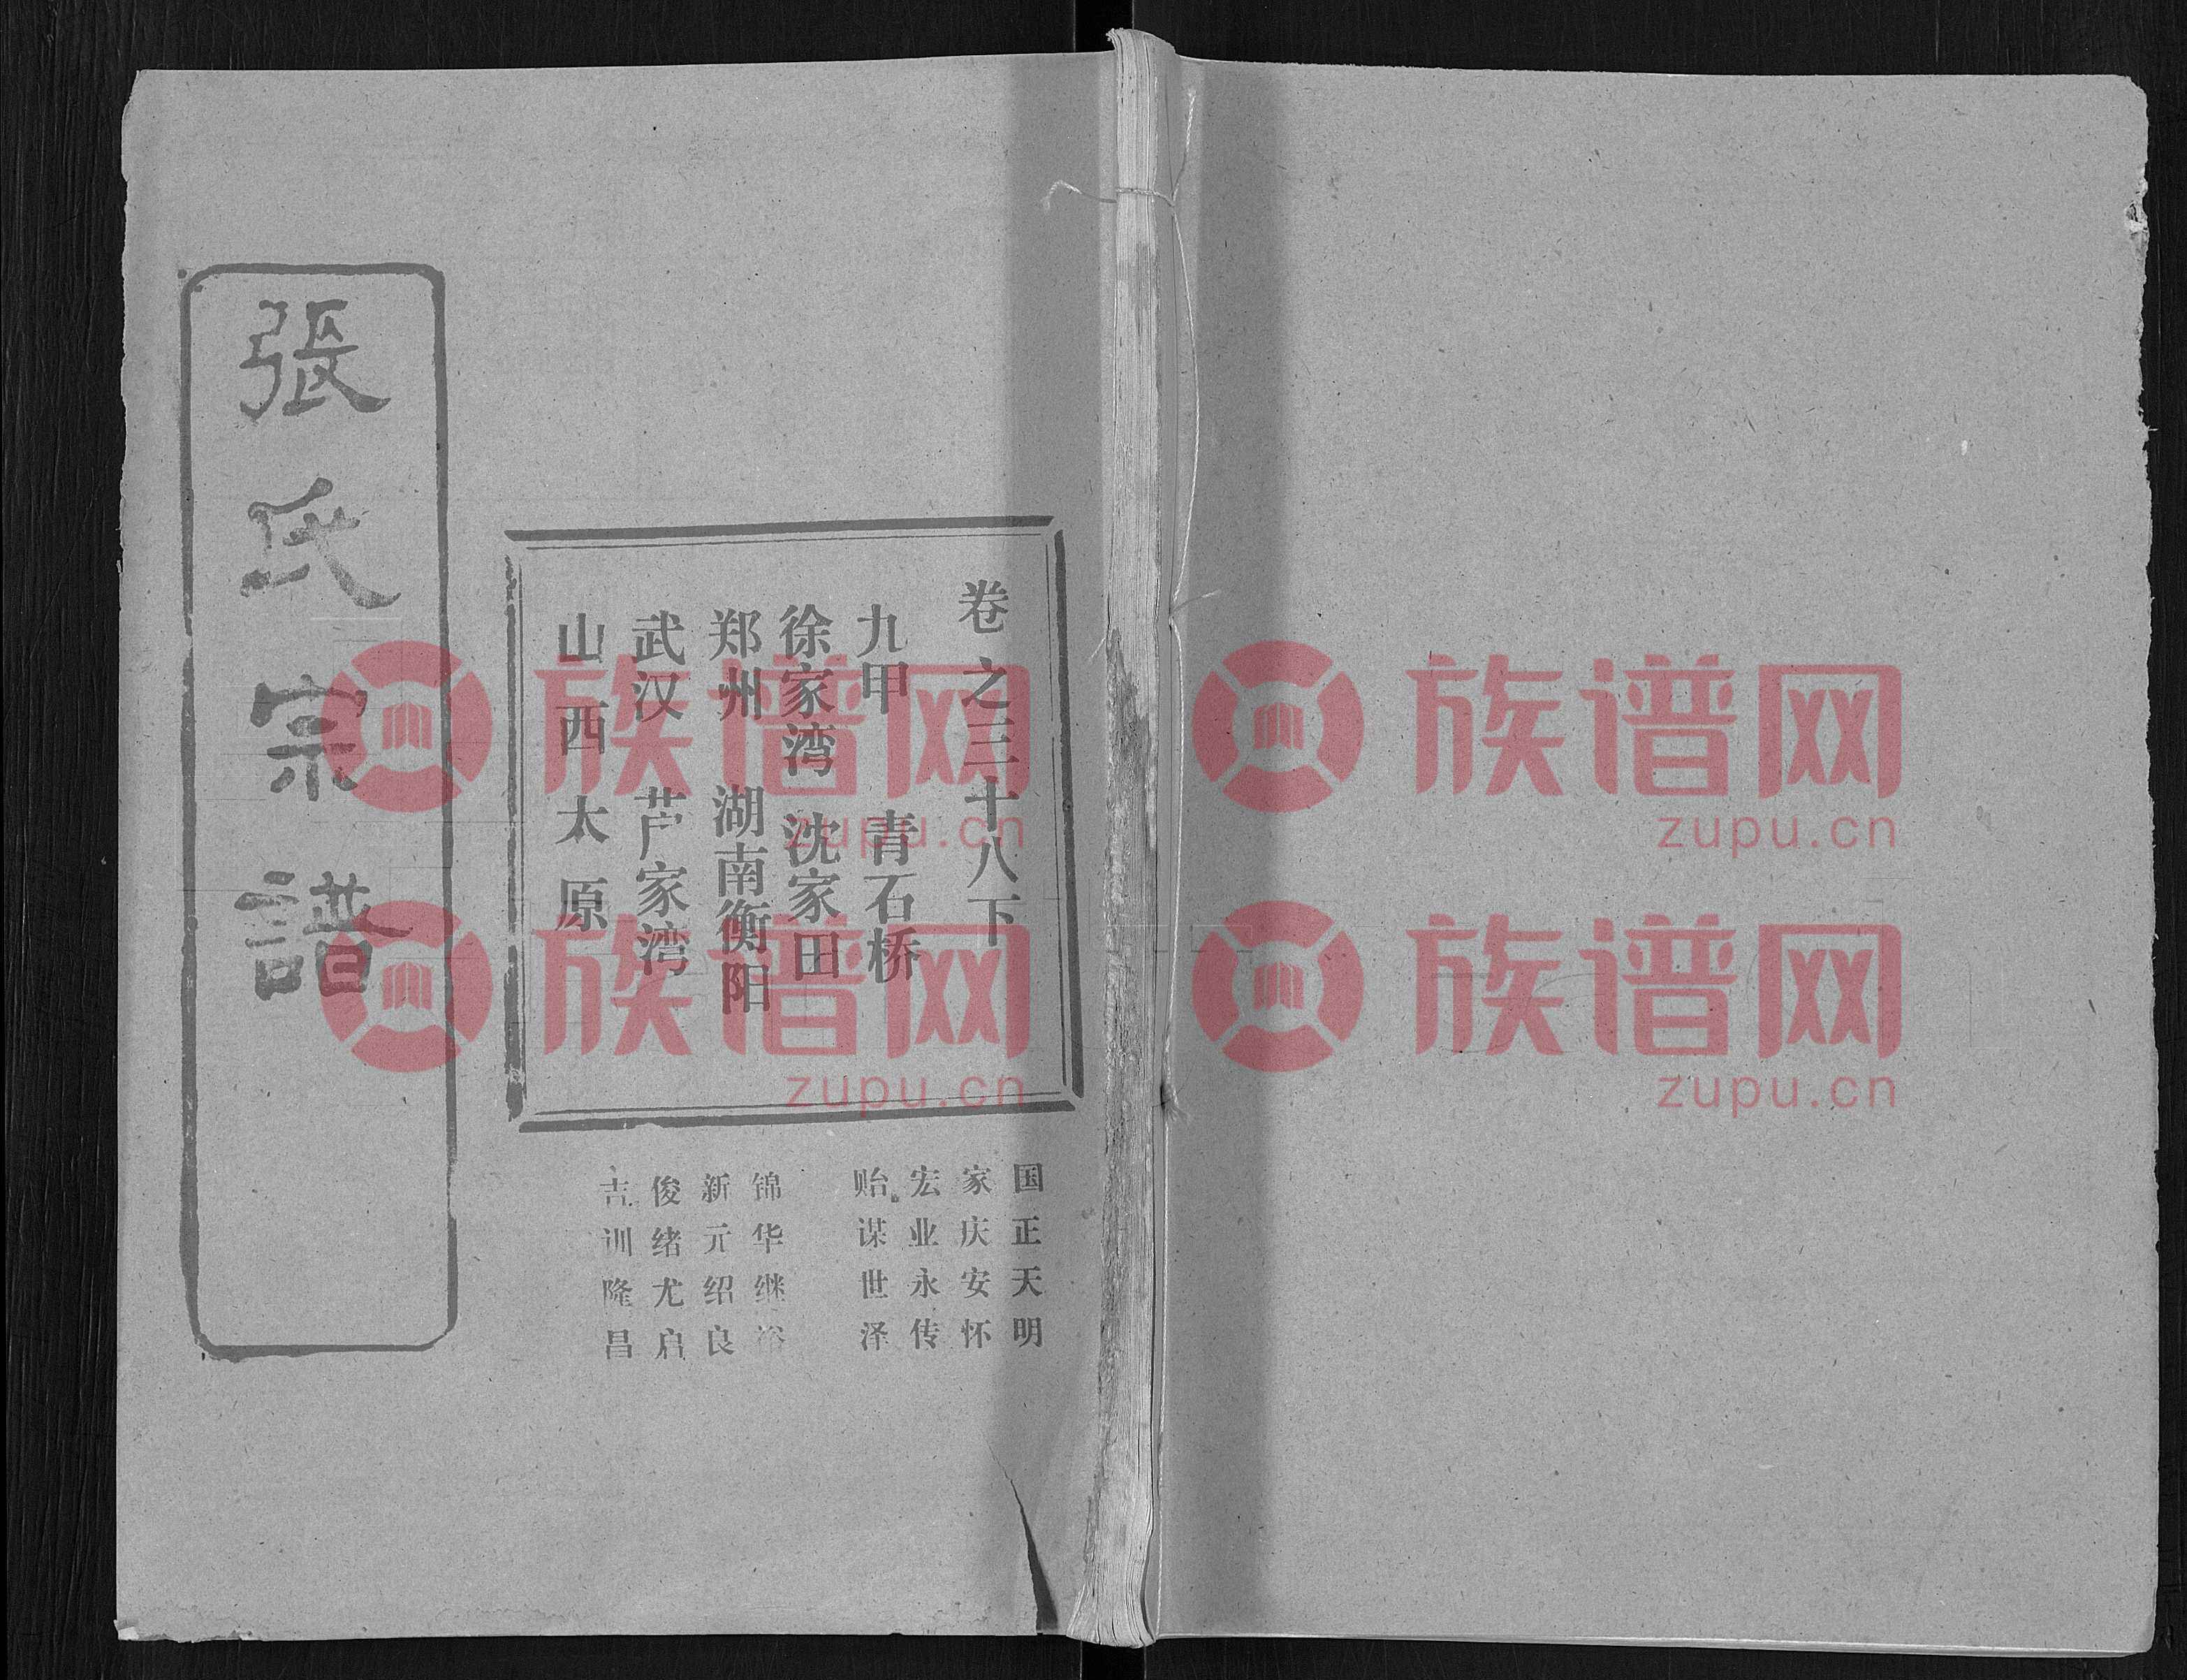 張氏宗譜
卷之三十八下
九甲 青石桥
徐家湾 沈家田
郑州 湖南衡阳
武汉 芦家湾
山西太原
国正天明
家庆安怀
宏业永传
贻谋世泽
锦华继裕
新元绍良
俊绪尤启
吉训隆昌
族谱网
zupu.cn
族谱网
zupu.cn
族谱网
zupu.cn
族谱网
zupu.cn